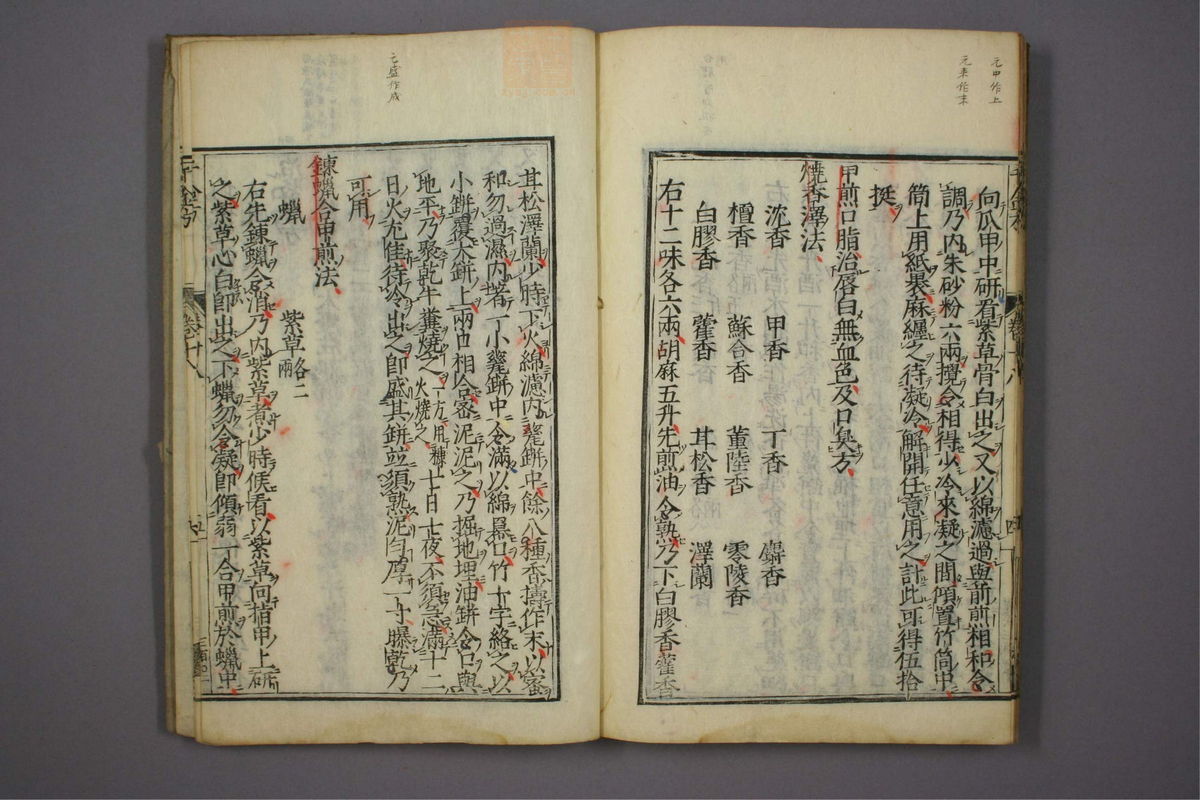 元中作上
元来作末
向爪甲中研看紫草骨白出之又以綿濾過與前煎相和令
調乃内朱砂粉六兩攪令相得少冷來凝之間傾置竹筒中
筒上用紙裹麻纏之待凝冷解開任意用之計此可得伍拾
挺
甲煎口脂治唇白無血色及口臭方
燒香澤法
沈香 甲香 丁香 麝香
檀香 蘇合香 薰陸香 零陵香
白膠香 藿香 甘松香 澤蘭
右十二味各六兩胡麻五升先煎油令熟乃下白膠香藿香
元盛作成
甘松澤蘭少時下火綿濾内甆缾中餘八種香擣作末以蜜
和勿過濕内著一小甆缾中令滿以綿羃口竹十字絡之以
小缾覆大缾上兩口相合密泥泥之乃掘地埋油缾令口與
地平乃聚乾牛糞燒之一方用糠火燒之七日七夜不須急滿十二
日火尤佳待冷出之即盛其缾並須熟泥勻厚一寸曝乾乃
可用
鍊蠟合甲煎法
蠟 紫草各二兩
右先鍊蠟令消乃内紫草煮少時候看以紫草向指甲上研
之紫草心白即出之下蠟勿令凝即傾弱一合甲煎於蠟中